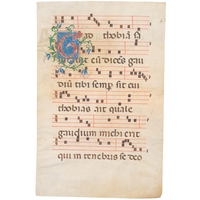 thobiã
eũ dicẽs gau
diũ tibi semp sit cui
thobias ait quale
gaudium michi erit
qui in tenebris sedeo